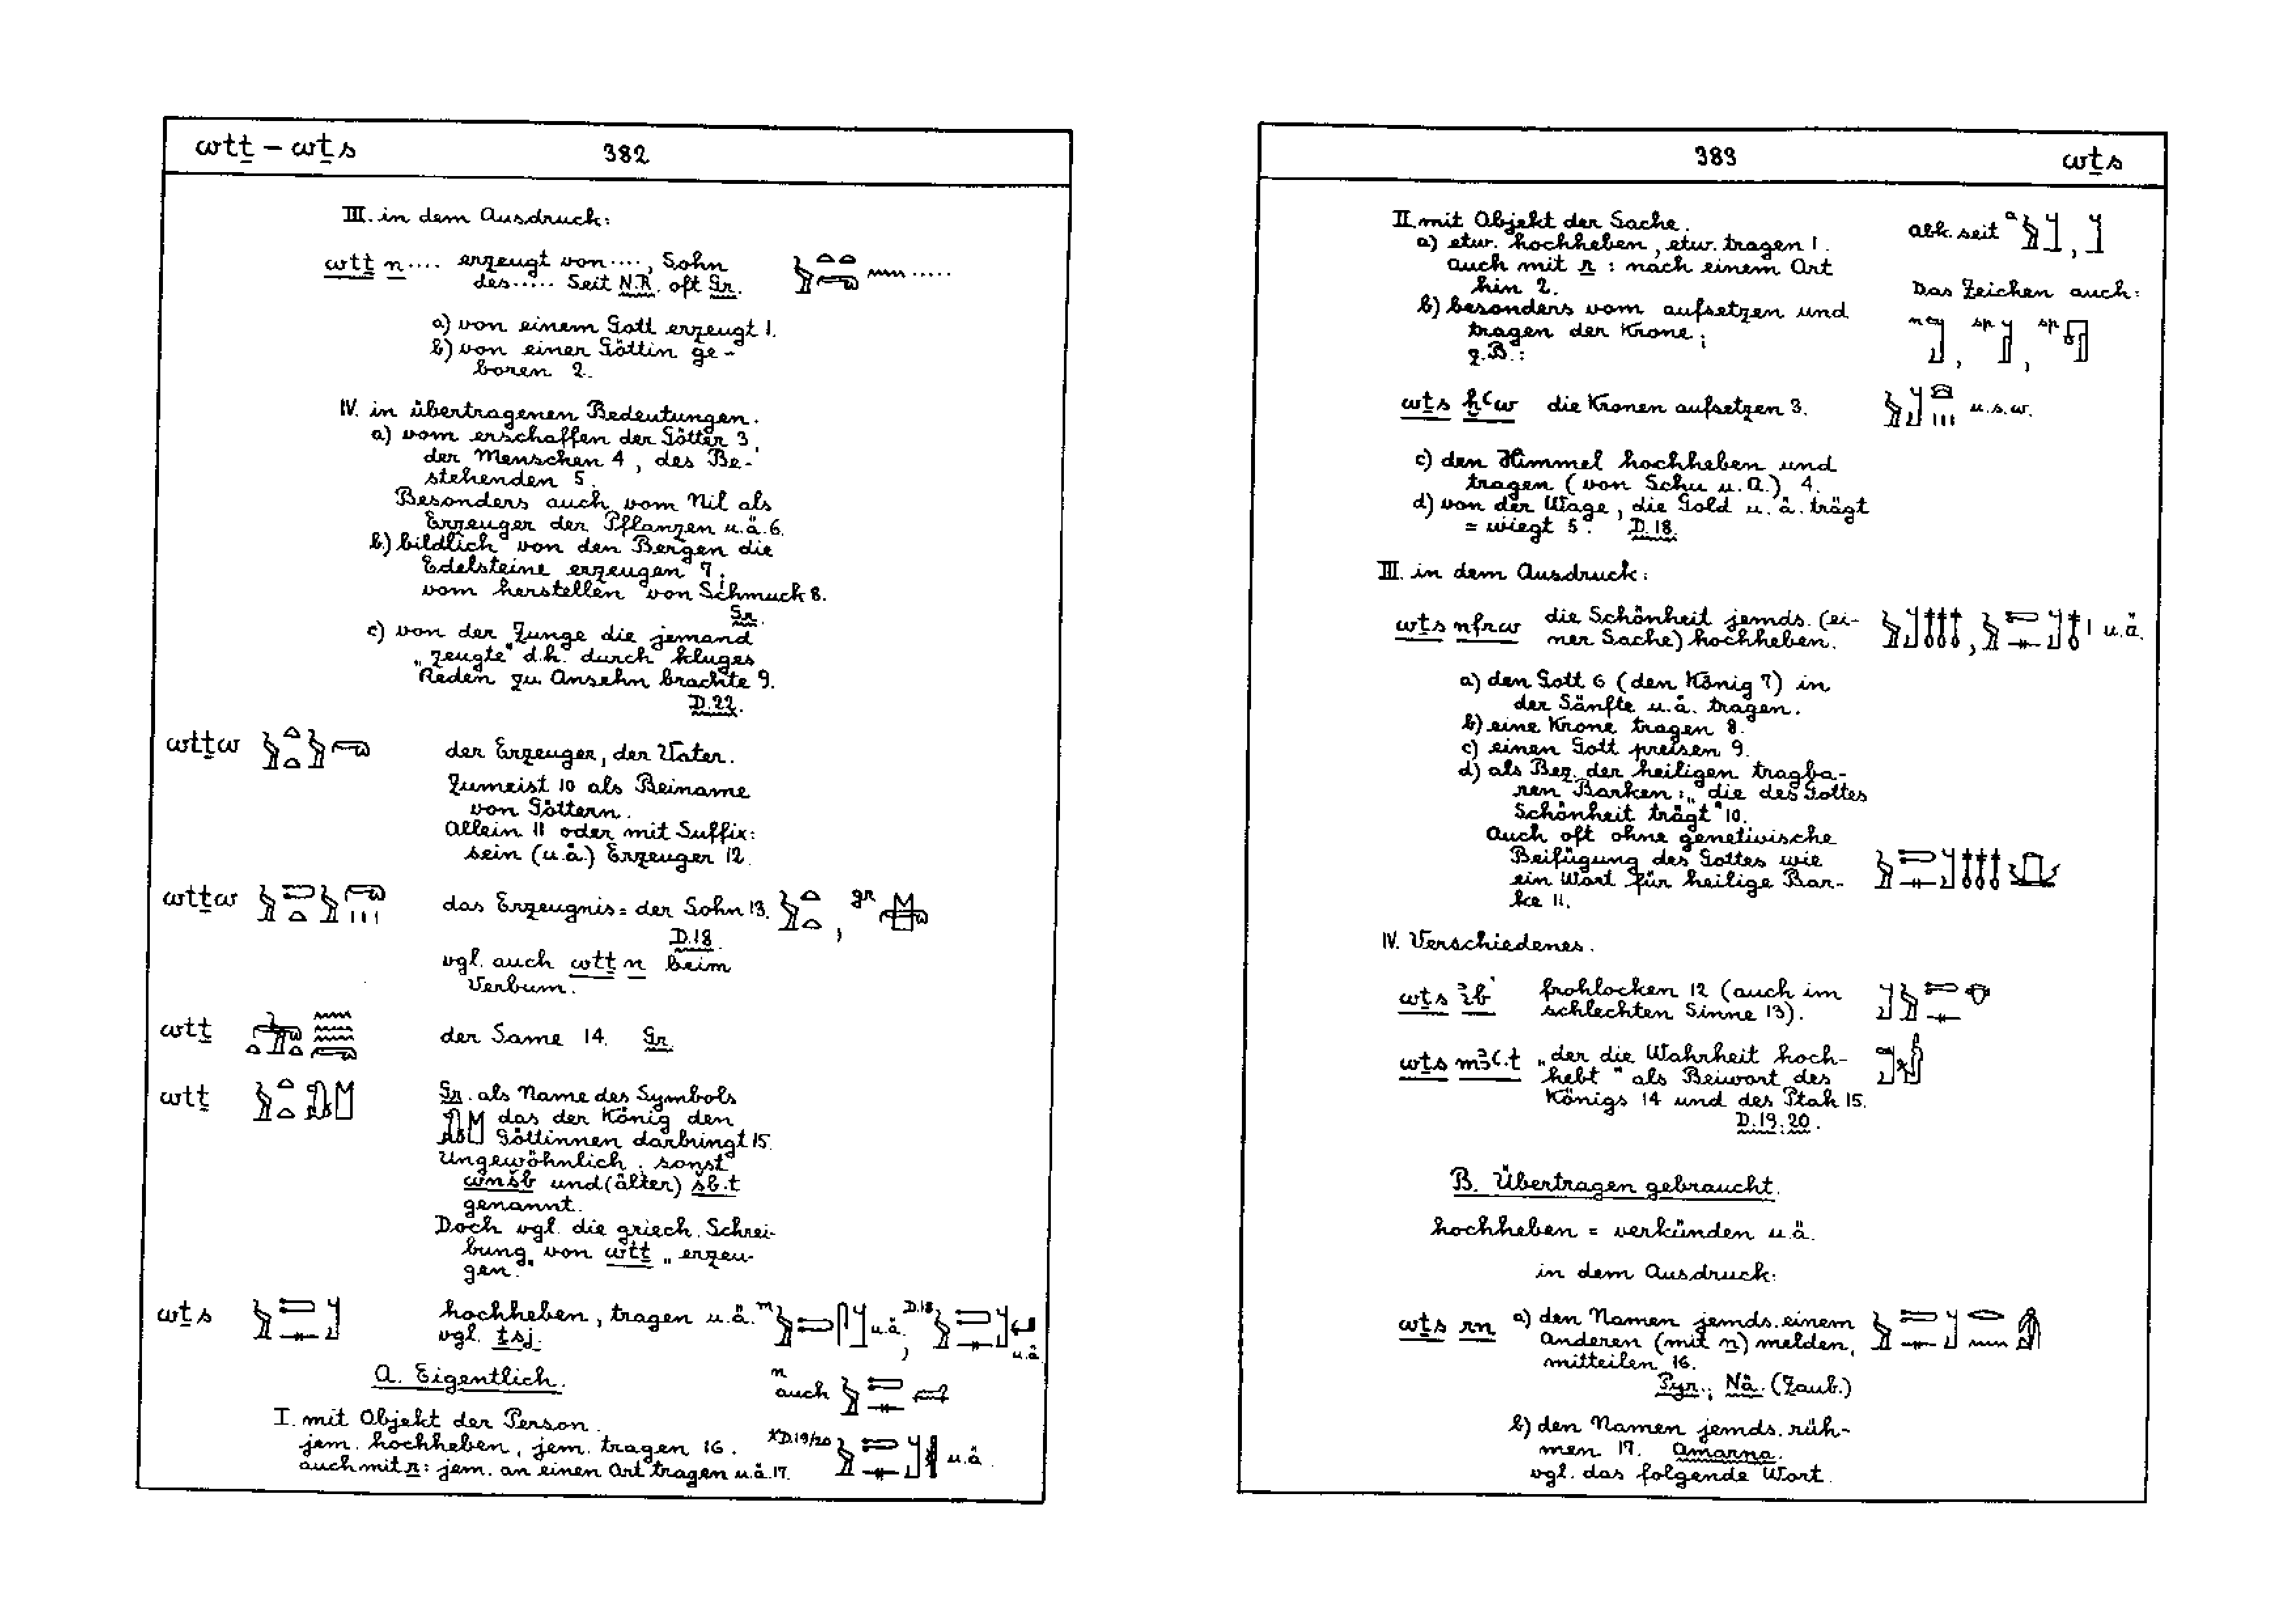 wtṯ – wṯs 382
III. in dem Ausdruck:
wtṯ n .... erzeugt von ...., Sohn
des ..... Seit N.R. oft Gr.
a) von einem Gott erzeugt 1.
b) von einer Göttin ge-
boren 2.
IV. in übertragenen Bedeutungen.
a) vom erschaffen der Götter 3,
der Menschen 4, des Be-
stehenden 5.
Besonders auch vom Nil als
Erzeuger der Pflanzen u.ä. 6.
b) bildlich von den Bergen die
Edelsteine erzeugen 7;
vom herstellen von Schmuck 8.
Gr.
c) von der Zunge die jemand
„zeugte" d.h. durch kluges
Reden zu Ansehn brachte 9.
D.22.
wtṯw der Erzeuger, der Vater.
Zumeist 10 als Beiname
von Göttern.
Allein 11 oder mit Suffix:
sein (u.ä.) Erzeuger 12.
wtṯw das Erzeugnis = der Sohn 13. , gr
D.18.
vgl. auch wtṯ n beim
Verbum.
wtṯ der Same 14. Gr.
wtṯ Gr. als Name des Symbols
das der König den
Göttinnen darbringt 15.
Ungewöhnlich; sonst
wnšb und (älter) šb.t
genannt.
Doch vgl. die griech. Schrei-
bung von wtṯ „erzeu-
gen."
wṯs hochheben, tragen u.ä. m u.ä., D.18 u.ä.
vgl. ṯsj.
A. Eigentlich.
n auch
I. mit Objekt der Person.
jem. hochheben, jem. tragen 16. D.19/20 u.ä.
auch mit r: jem. an einen Ort tragen u.ä. 17.
383 wṯs
II. mit Objekt der Sache. abk. seit a ,
a) etw. hochheben, etw. tragen 1.
auch mit r: nach einem Ort
hin 2. Das Zeichen auch:
b) besonders vom aufsetzen und
tragen der Krone; , sp , sp
z.B.:
wṯs ḫꜥw die Kronen aufsetzen 3. u.s.w.
c) den Himmel hochheben und
tragen (von Schu u.A.) 4.
d) von der Wage, die Gold u.ä. trägt
= wiegt 5. D.18.
III. in dem Ausdruck:
wṯs nfrw die Schönheit jemds. (ei-
ner Sache) hochheben. , u.ä.
a) den Gott 6 (den König 7) in
der Sänfte u.ä. tragen.
b) eine Krone tragen 8.
c) einen Gott preisen 9.
d) als Bez. der heiligen tragba-
ren Barken: „die des Gottes
Schönheit trägt" 10.
Auch oft ohne genetivische
Beifügung des Gottes wie
ein Wort für heilige Bar-
ke 11.
IV. Verschiedenes.
wṯs ꞽb frohlocken 12 (auch im
schlechten Sinne 13).
wṯs mꜣꜥ.t „der die Wahrheit hoch-
hebt" als Beiwort des
Königs 14 und des Ptah 15.
D.19.20.
B. Übertragen gebraucht.
hochheben = verkünden u.ä.
in dem Ausdruck:
wṯs rn a) den Namen jemds. einem
Anderen (mit n) melden,
mitteilen 16.
Pyr.; Nä. (Zaub.)
b) den Namen jemds. rüh-
men 17. Amarna.
vgl. das folgende Wort.